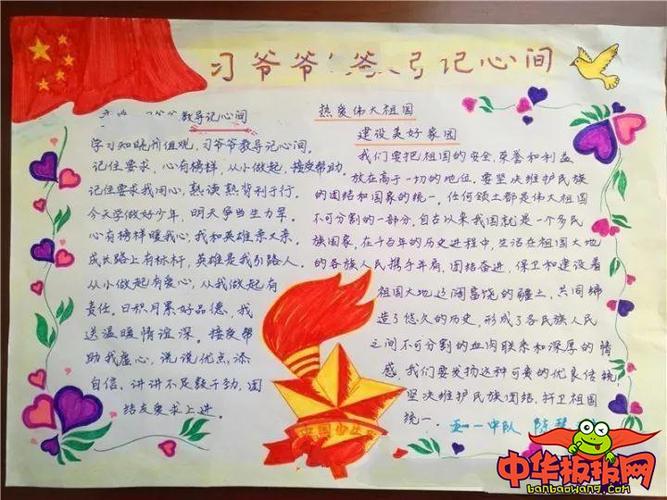 习爷爷 记心间
教导记心间
学习知晓价值观，习爷爷教导记心间。
记住要求，心有榜样，从小做起，接受帮助。
记住要求我用心，熟读熟背利于行。
今天学做好少年，明天争当生力军。
心有榜样暖我心，我和英雄亲又亲。
成长路上有标杆，英雄是我引路人。
从小做起有爱心，从我做起有
责任，日积月累好品德，我
送温暖情谊深。接受帮
助我虚心，说说优点，添
自信，讲讲不足鼓干劲，团
结友爱求上进。
热爱伟大祖国
建设美好家园
我们要把祖国的安全，荣誉和利益
放在高于一切的地位，要坚决维护民族
的团结和国家的统一。任何领土都是伟大祖国
不可分割的一部分，自古以来我国就是一个多民
族国家，在千百年的历史进程中，生活在祖国大地
的各族人民携手并肩，团结奋进，保卫和建设着
祖国大地这阔富饶的疆土，共同缔
造了悠久的历史，形成了各民族人民
之间不可分割的血肉联系和深厚的情
感，我们要发扬这种可贵的优良传统，
坚决维护民族团结，捍卫祖国
统一。
五一中队
中国少先
中华板报网
banbaowang.com